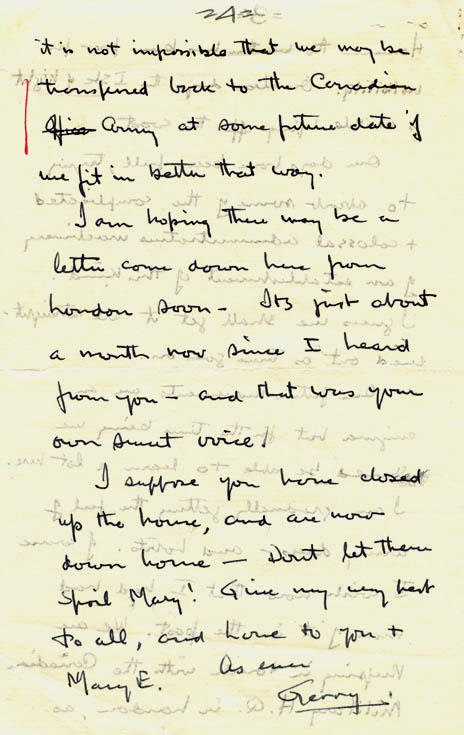 -2-
it is not impossible that we may be
transfered back to the Canadian
Office Army at some future date if
we fit in better that way.
I am hoping there may be a
letter come down here from
London soon - Its just about
a month now since I heard
from you - and that was your
own sweet voice!
I suppose you have closed
up the house, and are now
down home - Dont let them
spoil Mary! Give my very best
to all, and love to you +
Mary E. As ever
Gerry.